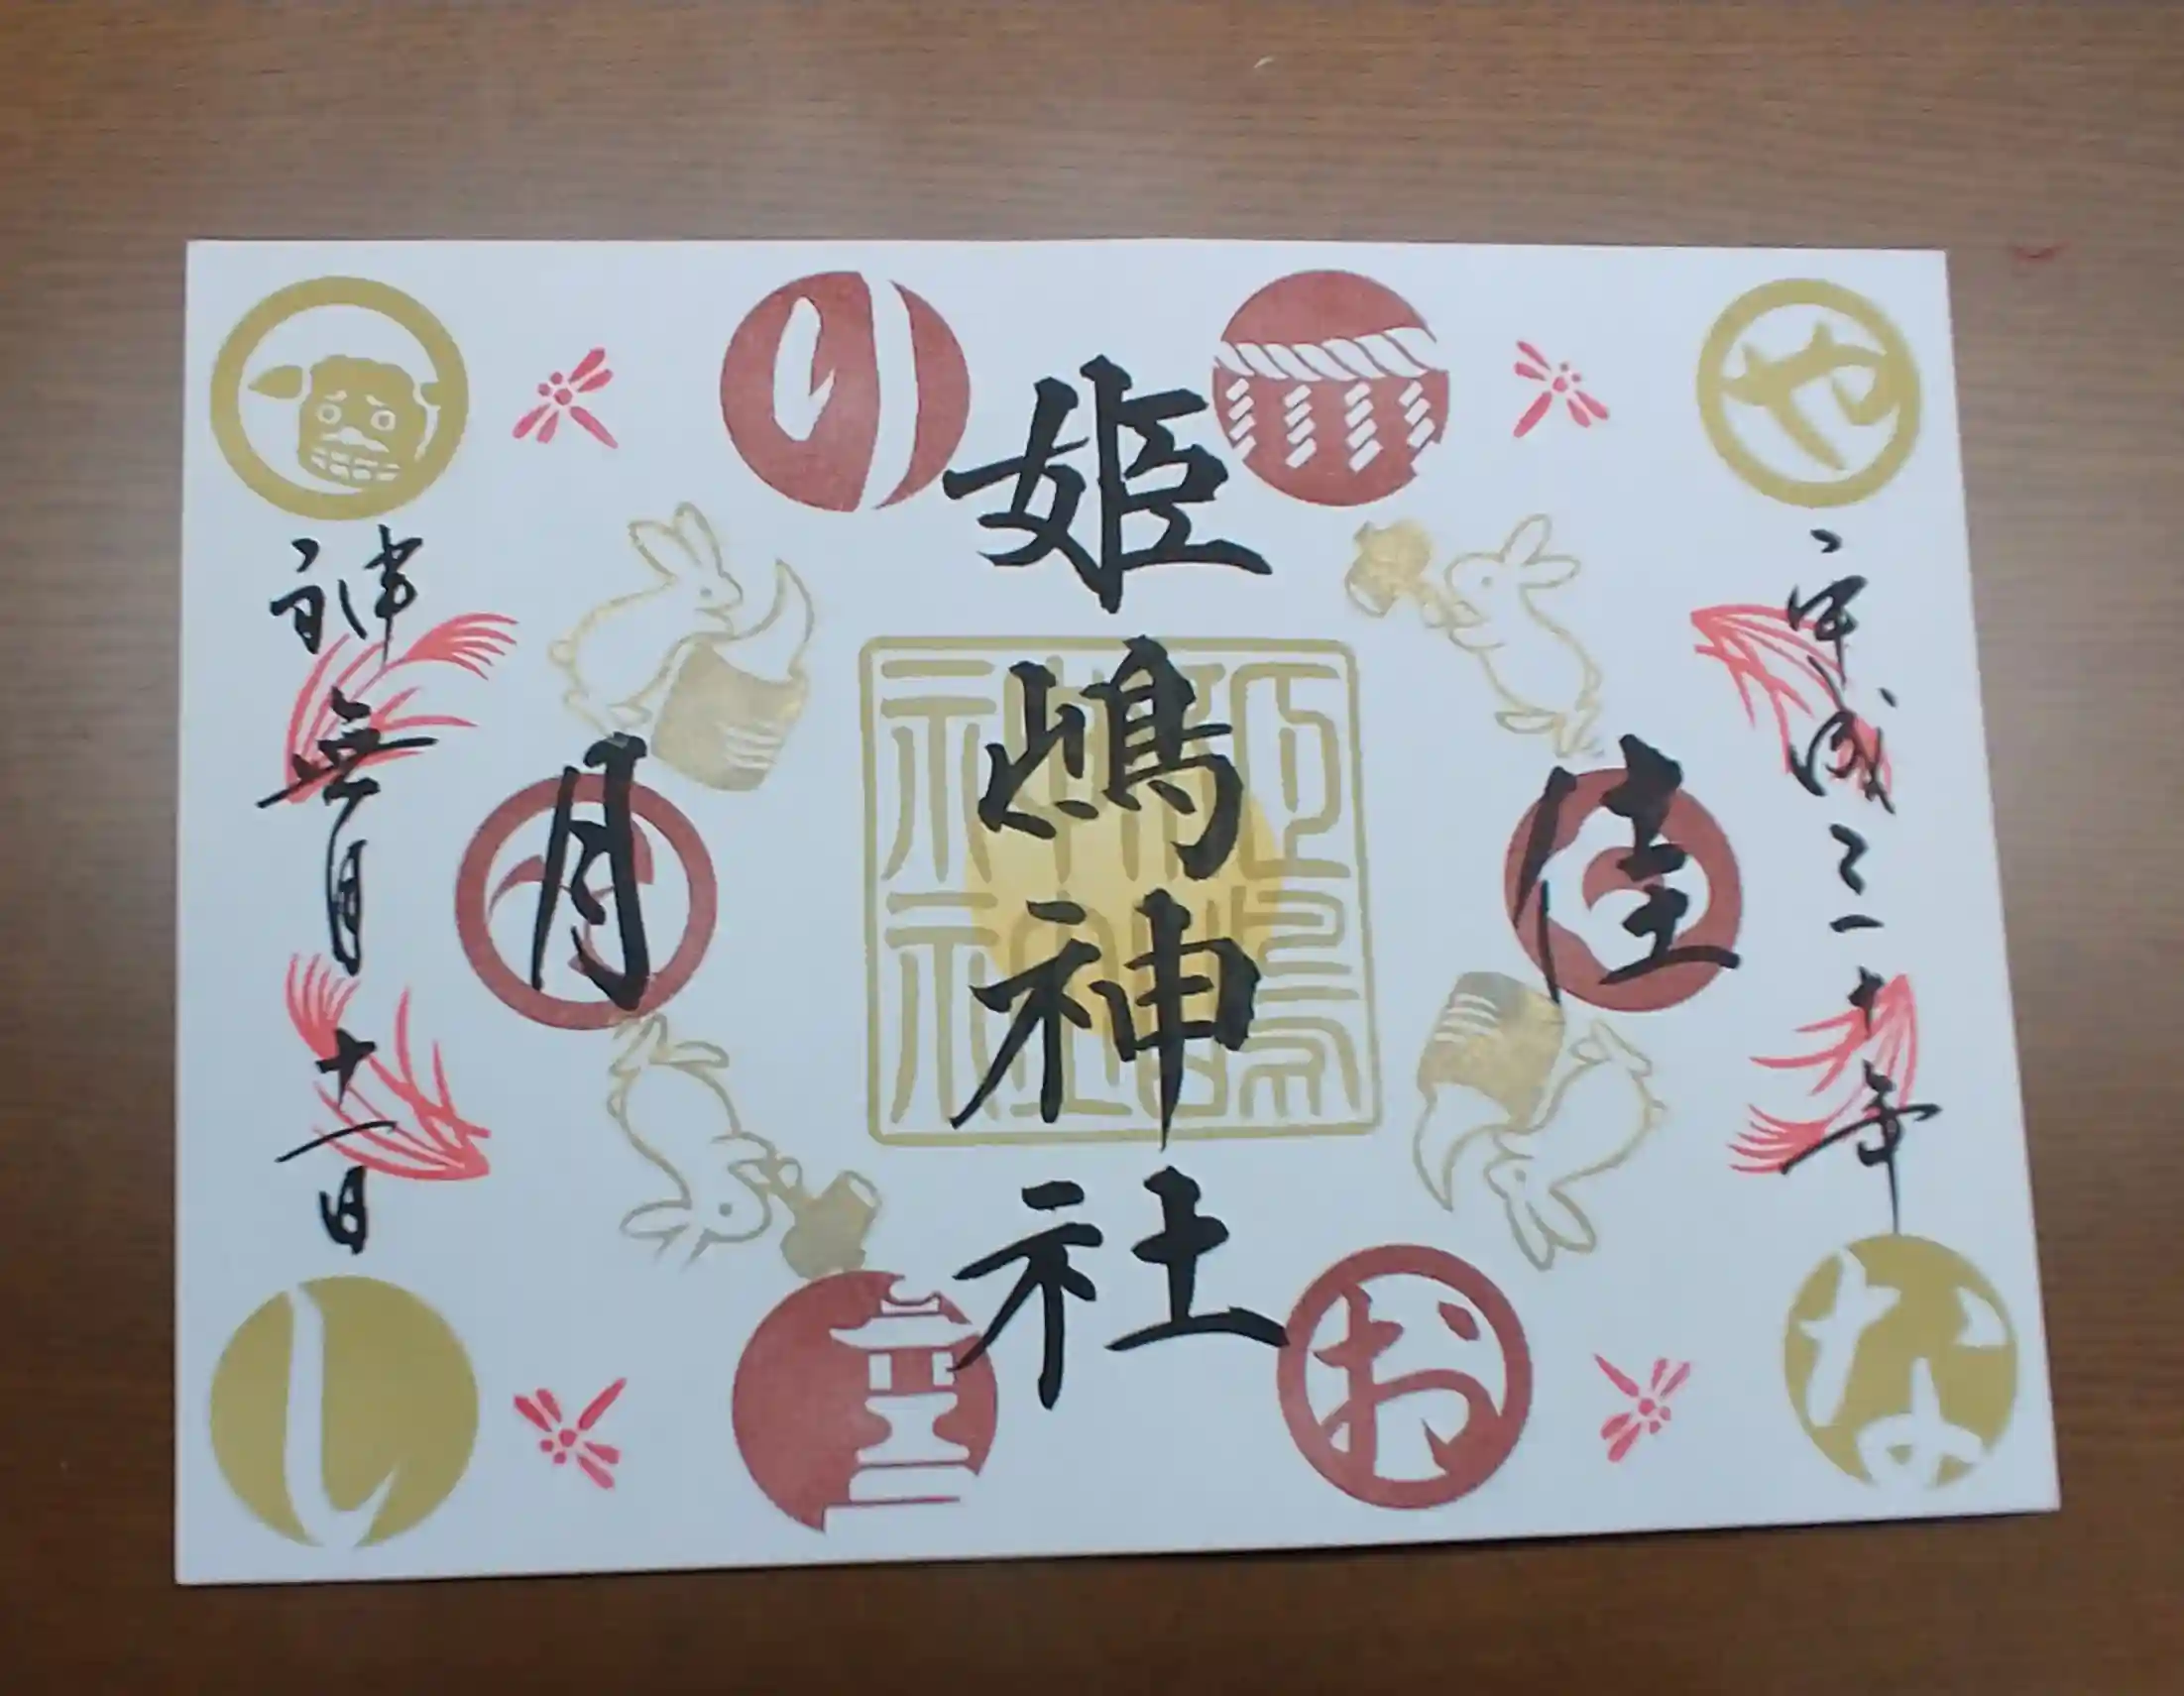 や
平成三十年
な
佳
お
姫嶋神社
姫嶋
神社
り
月
神無月十一日
し